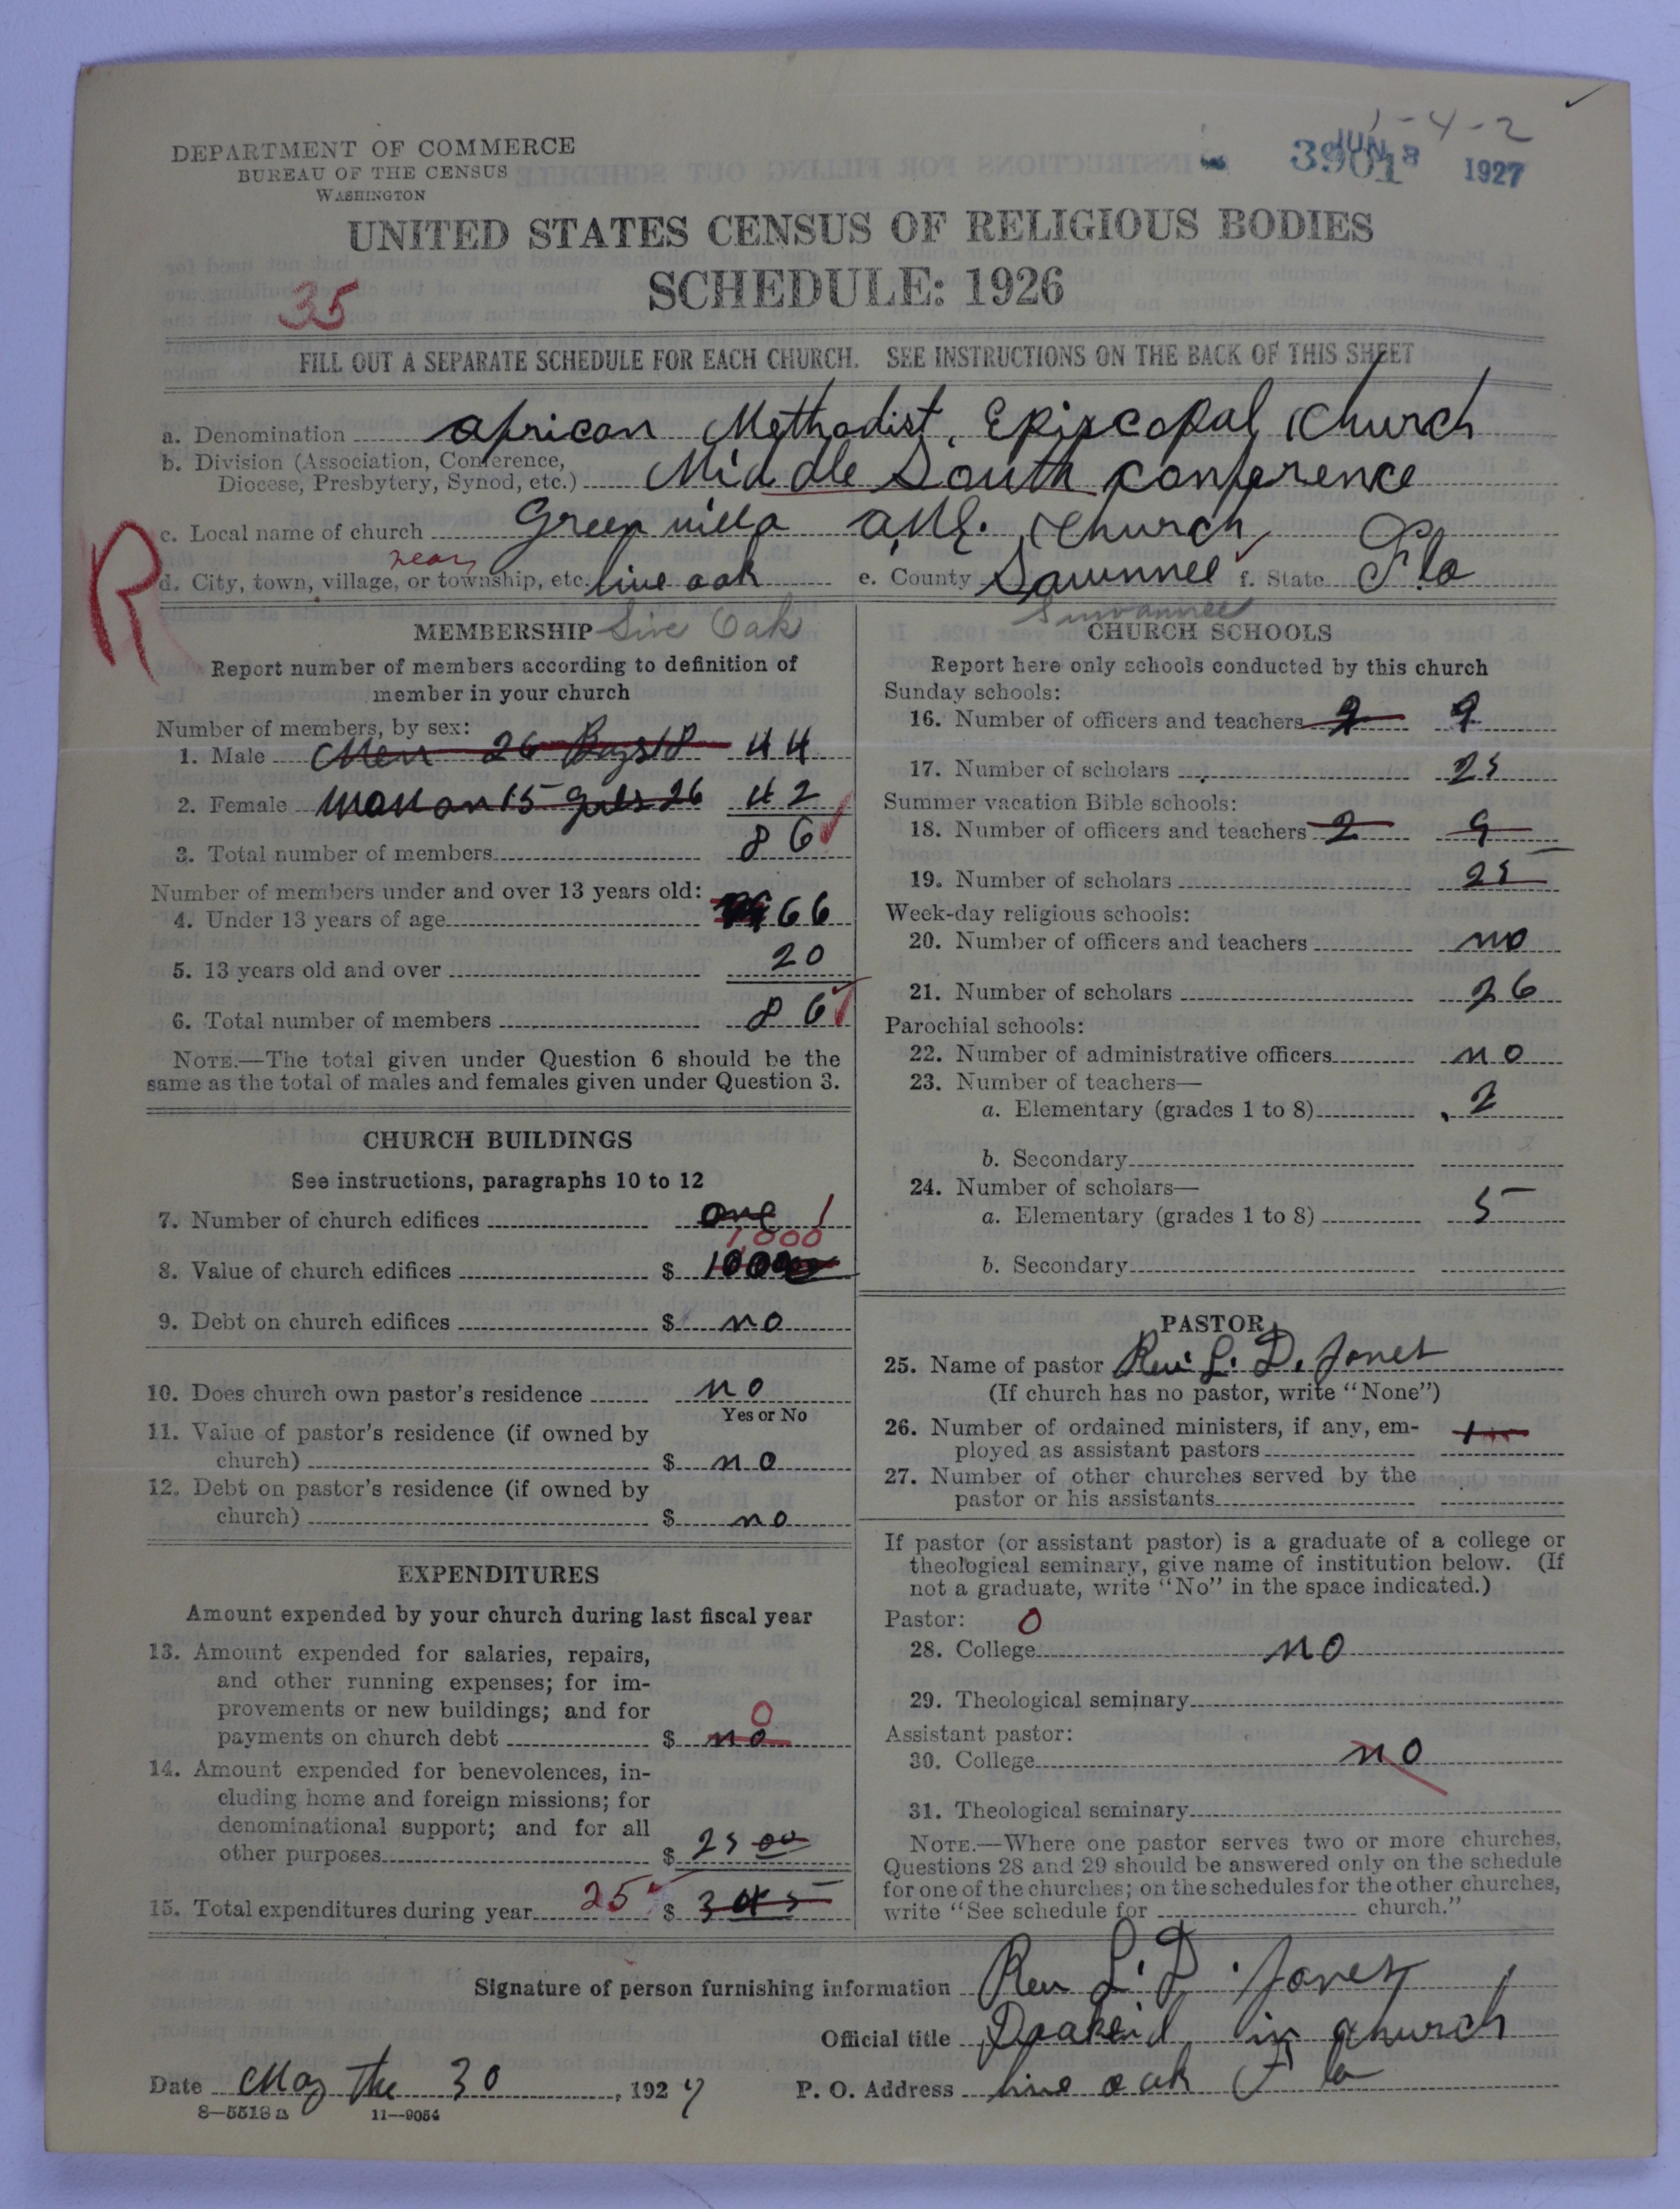 1-4-2
DEPARTMENT OF COMMERCE
BUREAU OF THE CENSUS
WASHINGTON
JUN 8 1927
3901
UNITED STATES CENSUS OF RELIGIOUS BODIES
SCHEDULE: 1926
35
FILL OUT A SEPARATE SCHEDULE FOR EACH CHURCH. SEE INSTRUCTIONS ON THE BACK OF THIS SHEET
a. Denomination African Methodist Episcopal Church
b. Division (Association, Conference, Diocese, Presbytery, Synod, etc.) Middle South Conference
R
c. Local name of church Green villa A.M.E. Church
near
d. City, town, village, or township, etc. live oak e. County Sawnnee f. State Fla
Suwannee
MEMBERSHIP Live Oak
Report number of members according to definition of
member in your church
Number of members, by sex:
1. Male Men 26 Boys 18 44
2. Female Woman 15 girls 26 42
3. Total number of members 86
Number of members under and over 13 years old:
4. Under 13 years of age 66
5. 13 years old and over 20
6. Total number of members 86
NOTE.—The total given under Question 6 should be the
same as the total of males and females given under Question 3.
CHURCH BUILDINGS
See instructions, paragraphs 10 to 12
7. Number of church edifices one 1
1,000
8. Value of church edifices $ 1000
9. Debt on church edifices $ no
10. Does church own pastor's residence no
Yes or No
11. Value of pastor's residence (if owned by
church) $ no
12. Debt on pastor's residence (if owned by
church) $ no
EXPENDITURES
Amount expended by your church during last fiscal year
13. Amount expended for salaries, repairs,
and other running expenses; for im-
provements or new buildings; and for 0
payments on church debt $ no
14. Amount expended for benevolences, in-
cluding home and foreign missions; for
denominational support; and for all
other purposes $ 25 00
15. Total expenditures during year 25 $ 345
CHURCH SCHOOLS
Report here only schools conducted by this church
Sunday schools:
16. Number of officers and teachers 9 9
17. Number of scholars 25
Summer vacation Bible schools:
18. Number of officers and teachers 2 9
19. Number of scholars 25
Week-day religious schools:
20. Number of officers and teachers no
21. Number of scholars 26
Parochial schools:
22. Number of administrative officers no
23. Number of teachers—
a. Elementary (grades 1 to 8) 2
b. Secondary
24. Number of scholars—
a. Elementary (grades 1 to 8) 5
b. Secondary
PASTOR
25. Name of pastor Rev. L. D. Jones
(If church has no pastor, write "None")
26. Number of ordained ministers, if any, em-
ployed as assistant pastors 1
27. Number of other churches served by the
pastor or his assistants
If pastor (or assistant pastor) is a graduate of a college or
theological seminary, give name of institution below. (If
not a graduate, write "No" in the space indicated.)
Pastor: 0
28. College no
29. Theological seminary
Assistant pastor:
30. College no
31. Theological seminary
NOTE.—Where one pastor serves two or more churches,
Questions 28 and 29 should be answered only on the schedule
for one of the churches; on the schedules for the other churches,
write "See schedule for church."
Signature of person furnishing information Rev L. D. Jones
Official title in church
Date May the 30, 1927 P. O. Address live oak Fla
8—5518a 11—9054